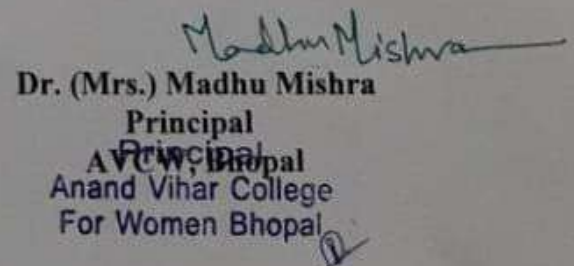 Madhu Mishra
Dr. (Mrs.) Madhu Mishra
Principal
Principal
AVCW, Bhopal
Anand Vihar College
For Women Bhopal